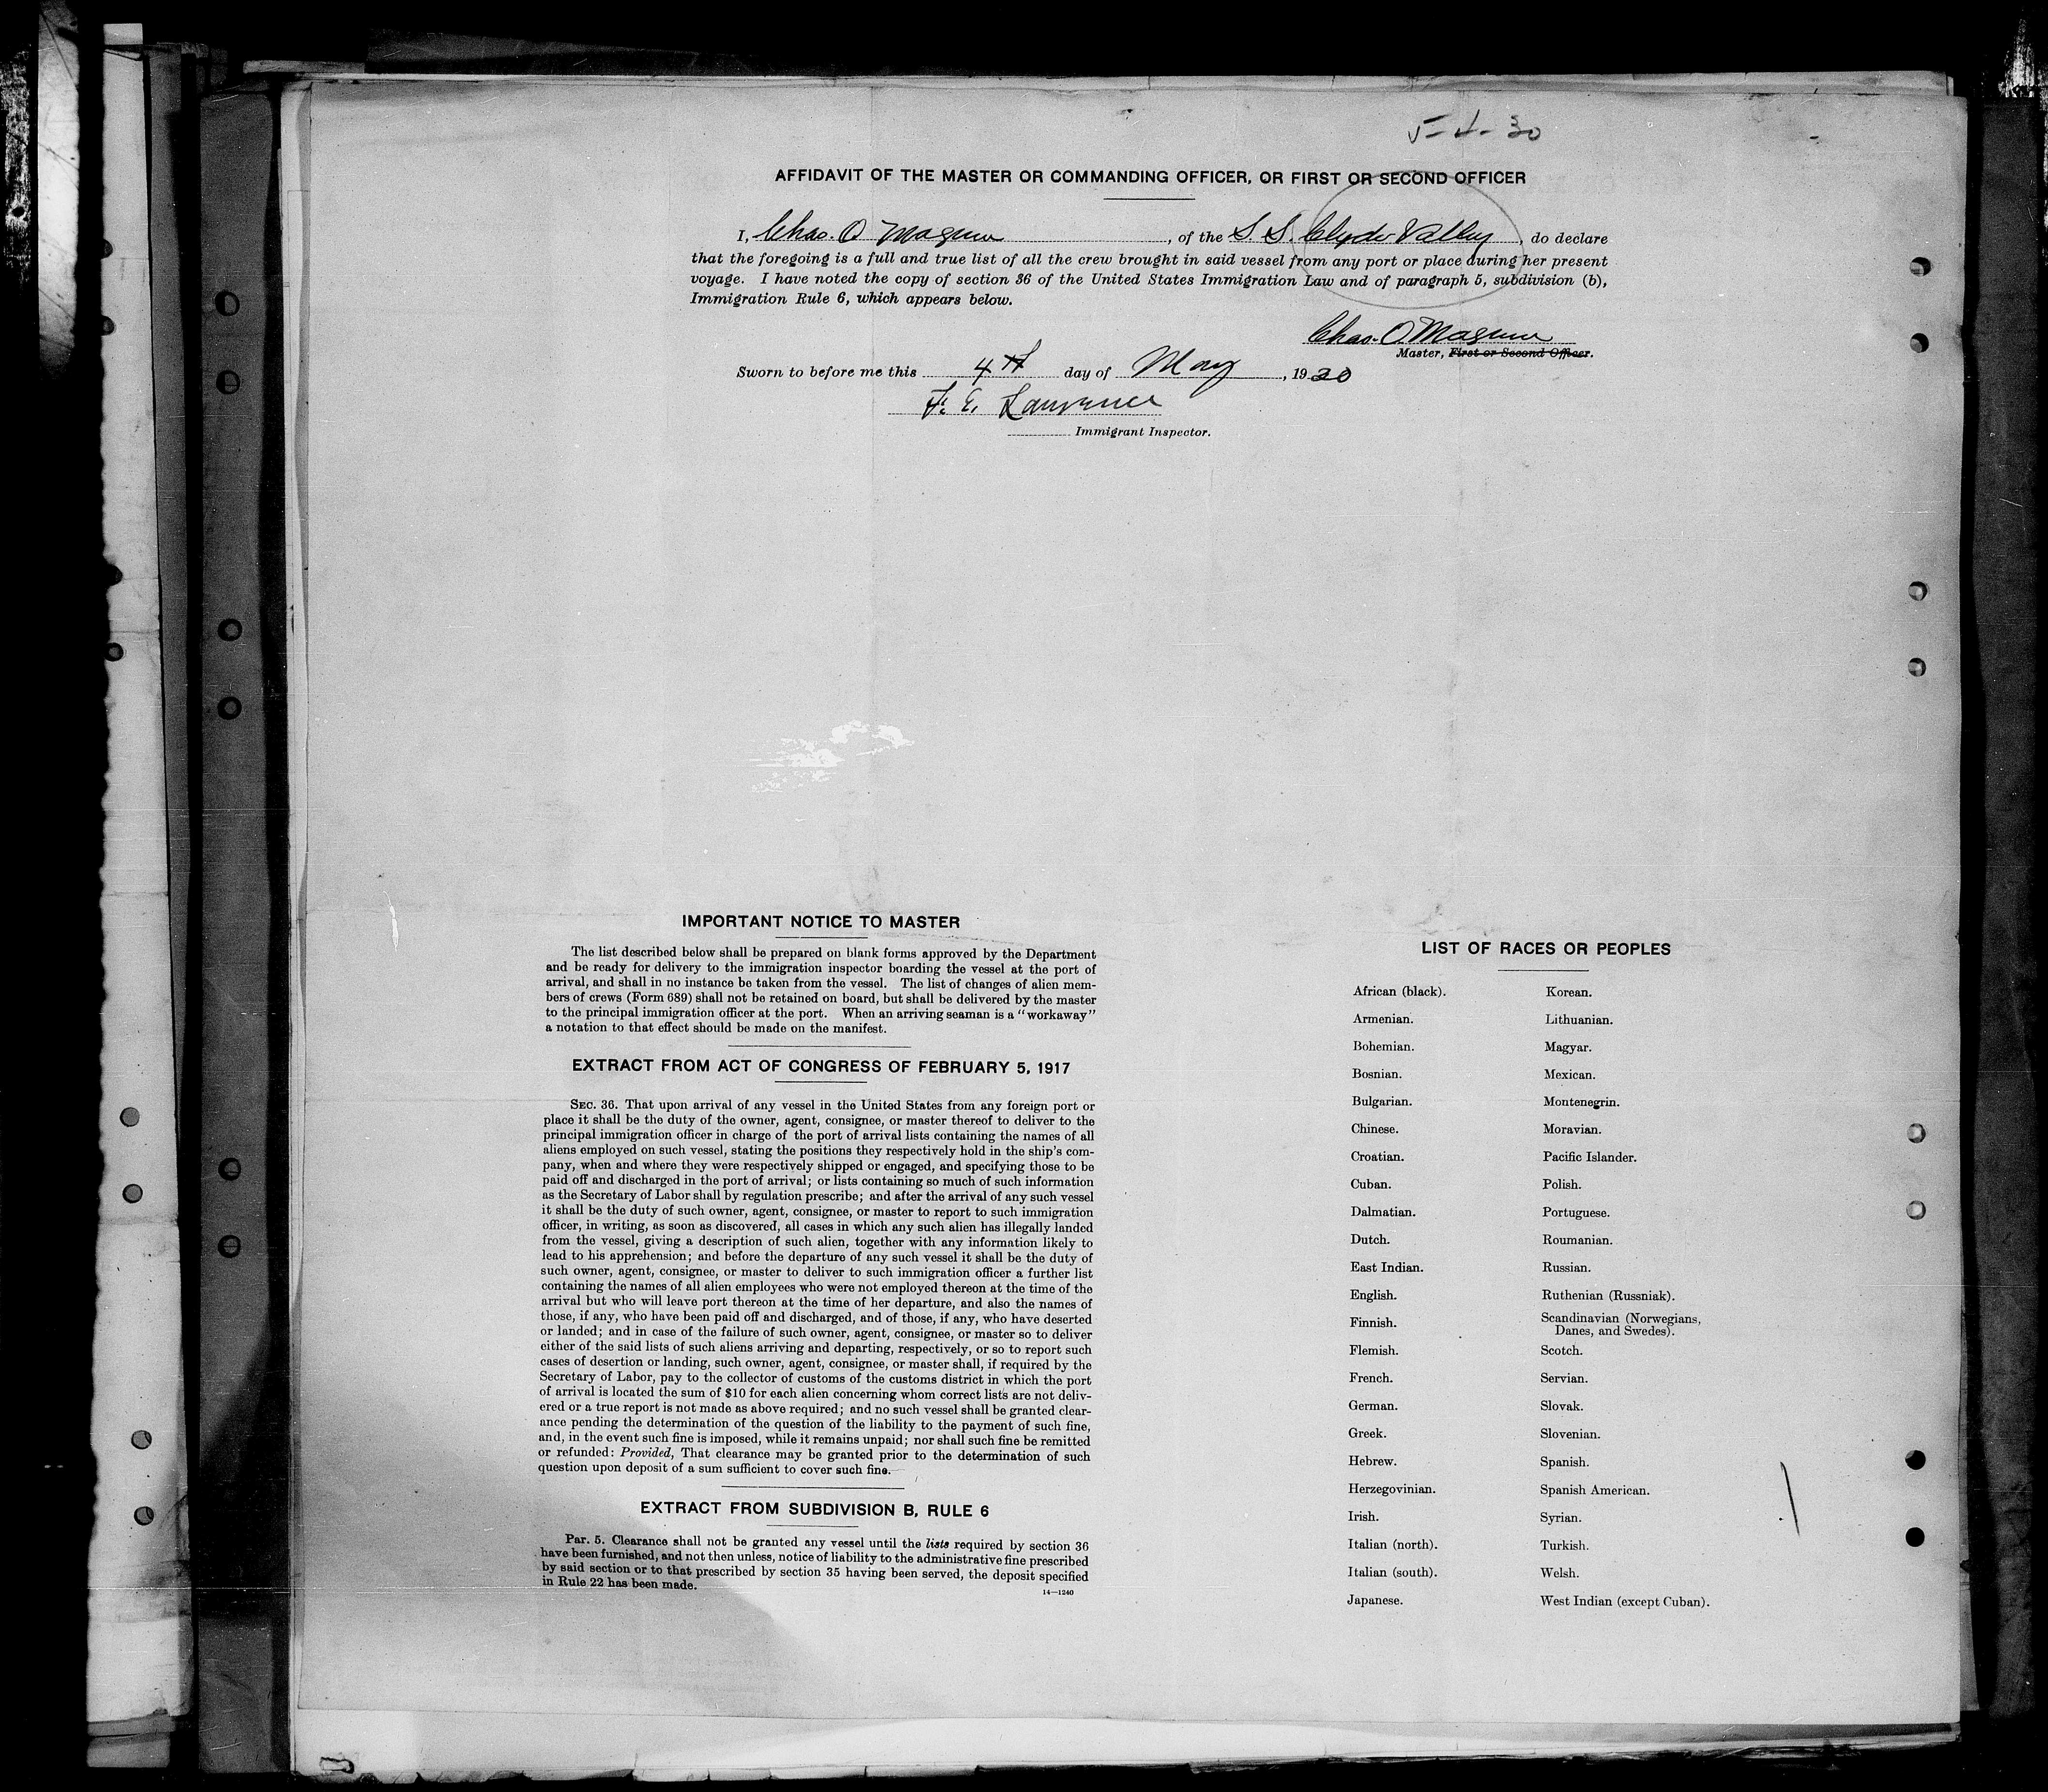 5-4-30
AFFIDAVIT OF THE MASTER OR COMMANDING OFFICER, OR FIRST OR SECOND OFFICER
I, Chas. O Magune, of the S. S. Clyde Valley, do declare
that the foregoing is a full and true list of all the crew brought in said vessel from any port or place during her present
voyage. I have noted the copy of section 36 of the United States Immigration Law and of paragraph 5, subdivision (b),
Immigration Rule 6, which appears below.
Chas. O Magune
Master, First or Second Officer.
Sworn to before me this 4th day of May, 1930
F. E. Lawrence
Immigrant Inspector.
IMPORTANT NOTICE TO MASTER
The list described below shall be prepared on blank forms approved by the Department
and be ready for delivery to the immigration inspector boarding the vessel at the port of
arrival, and shall in no instance be taken from the vessel. The list of changes of alien mem-
bers of crews (Form 689) shall not be retained on board, but shall be delivered by the master
to the principal immigration officer at the port. When an arriving seaman is a "workaway"
a notation to that effect should be made on the manifest.
EXTRACT FROM ACT OF CONGRESS OF FEBRUARY 5, 1917
SEC. 36. That upon arrival of any vessel in the United States from any foreign port or
place it shall be the duty of the owner, agent, consignee, or master thereof to deliver to the
principal immigration officer in charge of the port of arrival lists containing the names of all
aliens employed on such vessel, stating the positions they respectively hold in the ship's com-
pany, when and where they were respectively shipped or engaged, and specifying those to be
paid off and discharged in the port of arrival; or lists containing so much of such information
as the Secretary of Labor shall by regulation prescribe; and after the arrival of any such vessel
it shall be the duty of such owner, agent, consignee, or master to report to such immigration
officer, in writing, as soon as discovered, all cases in which any such alien has illegally landed
from the vessel, giving a description of such alien, together with any information likely to
lead to his apprehension; and before the departure of any such vessel it shall be the duty of
such owner, agent, consignee, or master to deliver to such immigration officer a further list
containing the names of all alien employees who were not employed thereon at the time of the
arrival but who will leave port thereon at the time of her departure, and also the names of
those, if any, who have been paid off and discharged, and of those, if any, who have deserted
or landed; and in case of the failure of such owner, agent, consignee, or master so to deliver
either of the said lists of such aliens arriving and departing, respectively, or so to report such
cases of desertion or landing, such owner, agent, consignee, or master shall, if required by the
Secretary of Labor, pay to the collector of customs of the customs district in which the port
of arrival is located the sum of $10 for each alien concerning whom correct lists are not deliv-
ered or a true report is not made as above required; and no such vessel shall be granted clear-
ance pending the determination of the question of the liability to the payment of such fine,
and, in the event such fine is imposed, while it remains unpaid; nor shall such fine be remitted
or refunded: Provided, That clearance may be granted prior to the determination of such
question upon deposit of a sum sufficient to cover such fine.
EXTRACT FROM SUBDIVISION B, RULE 6
Par. 5. Clearance shall not be granted any vessel until the lists required by section 36
have been furnished, and not then unless, notice of liability to the administrative fine prescribed
by said section or to that prescribed by section 35 having been served, the deposit specified
in Rule 22 has been made.
14—1240
LIST OF RACES OR PEOPLES
African (black).
Armenian.
Bohemian.
Bosnian.
Bulgarian.
Chinese.
Croatian.
Cuban.
Dalmatian.
Dutch.
East Indian.
English.
Finnish.
Flemish.
French.
German.
Greek.
Hebrew.
Herzegovinian.
Irish.
Italian (north).
Italian (south).
Japanese.
Korean.
Lithuanian.
Magyar.
Mexican.
Montenegrin.
Moravian.
Pacific Islander.
Polish.
Portuguese.
Roumanian.
Russian.
Ruthenian (Russniak).
Scandinavian (Norwegians,
Danes, and Swedes).
Scotch.
Servian.
Slovak.
Slovenian.
Spanish.
Spanish American.
Syrian.
Turkish.
Welsh.
West Indian (except Cuban).